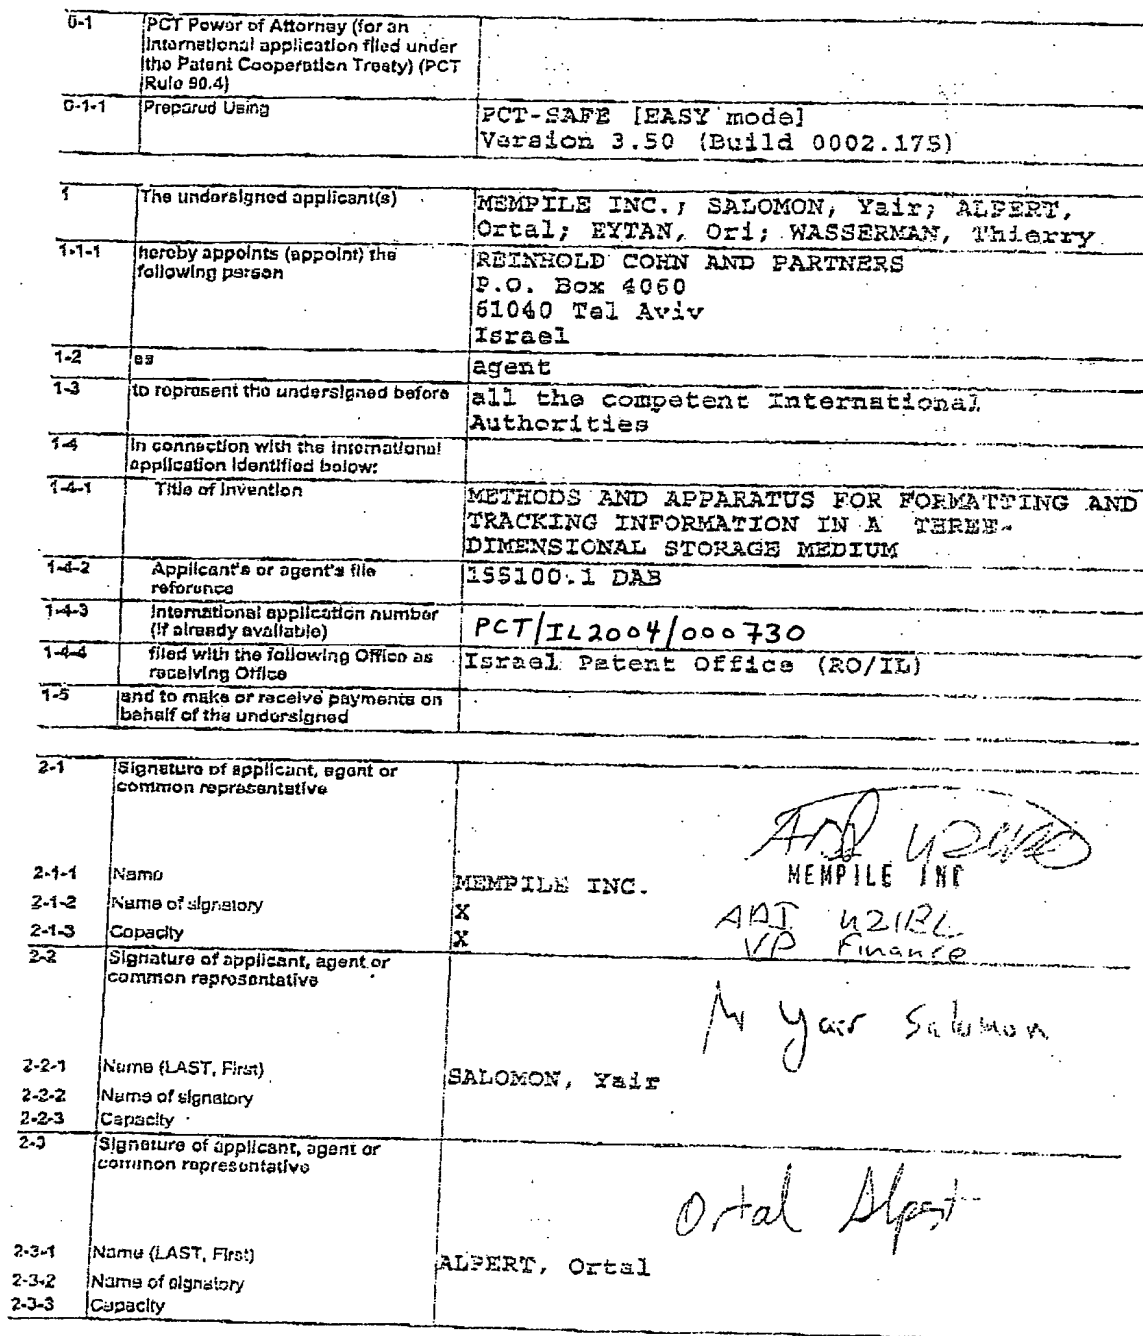 0-1 PCT Power of Attorney (for an
international application filed under
the Patent Cooperation Treaty) (PCT
Rule 90.4)
0-1-1 Prepared Using PCT-SAFE [EASY mode]
Version 3.50 (Build 0002.175)
1 The undersigned applicant(s) MEMPILE INC.; SALOMON, Yair; ALPERT,
Ortal; EYTAN, Ori; WASSERMAN, Thierry
1-1-1 hereby appoints (appoint) the
following person REINHOLD COHN AND PARTNERS
P.O. Box 4060
61040 Tel Aviv
Israel
1-2 as agent
1-3 to represent the undersigned before all the competent International
Authorities
1-4 in connection with the international
application identified below:
1-4-1 Title of Invention METHODS AND APPARATUS FOR FORMATTING AND
TRACKING INFORMATION IN A THREE-
DIMENSIONAL STORAGE MEDIUM
1-4-2 Applicant's or agent's file
reference 155100.1 DAB
1-4-3 International application number
(if already available) PCT/IL2004/000730
1-4-4 filed with the following Office as
receiving Office Israel Patent Office (RO/IL)
1-5 and to make or receive payments on
behalf of the undersigned
2-1 Signature of applicant, agent or
common representative
MEMPILE INC
2-1-1 Name MEMPILE INC.
2-1-2 Name of signatory X ADI UZIEL
2-1-3 Capacity X VP Finance
2-2 Signature of applicant, agent or
common representative
Yair Salomon
2-2-1 Name (LAST, First) SALOMON, Yair
2-2-2 Name of signatory
2-2-3 Capacity
2-3 Signature of applicant, agent or
common representative
Ortal Alpert
2-3-1 Name (LAST, First) ALPERT, Ortal
2-3-2 Name of signatory
2-3-3 Capacity